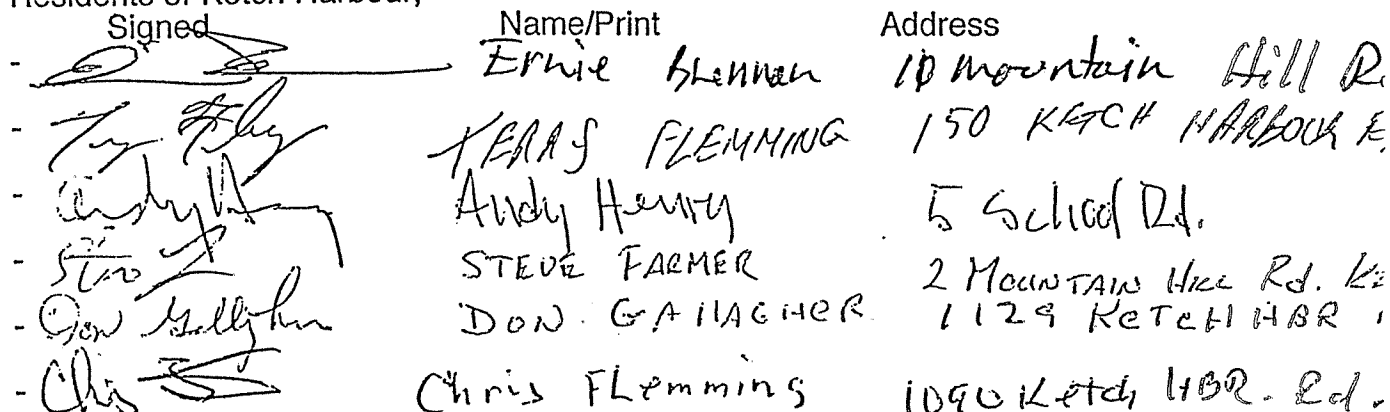 Residents of Ketch Harbour,
Signed Name/Print Address
- Ernie Brennan 10 mountain Hill R
- FLEMMING 150 KETCH HARBOUR
- Andy Henry Andy Henry 5 School Rd.
- STEVE FARMER 2 MOUNTAIN HILL Rd.
- Don Gallagher DON. GALLAGHER 1129 KETCH HBR
- Chris Chris Flemming 1090 Ketch HBR. Rd.